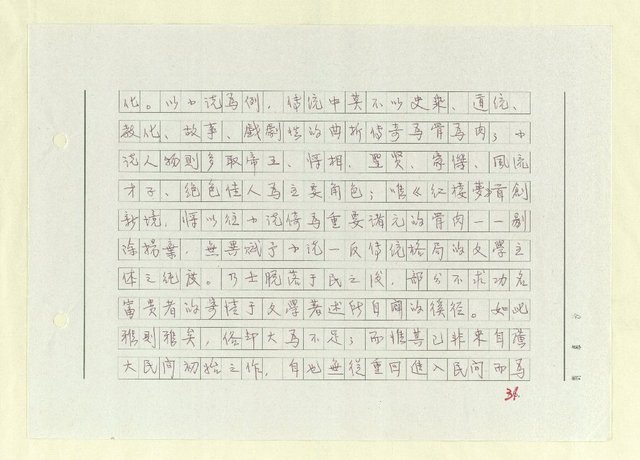 化。以小说為例，傳統中莫不以史桨、道统、
教化、故事、戲劇性的曲折傳奇為骨為肉；小
说人物则多取帝王、將相、聖贤、豪傑、風流
才子、绝色佳人為主要角色；唯《红楼夢》首創
新境，將以往小说倚為重要诸元的骨肉一一剔
除揚棄，無異斌予小说一反傳統格局的文學主
体之绝　。乃士脱落于民之後，部分不求功名
富貴者的寄情于文學著述所自闢的後徑。如此
雅则雅矣，俗却大為不足；而惟其已非来自廣
大民间初始之作，自也無從重回進入民间而為
34